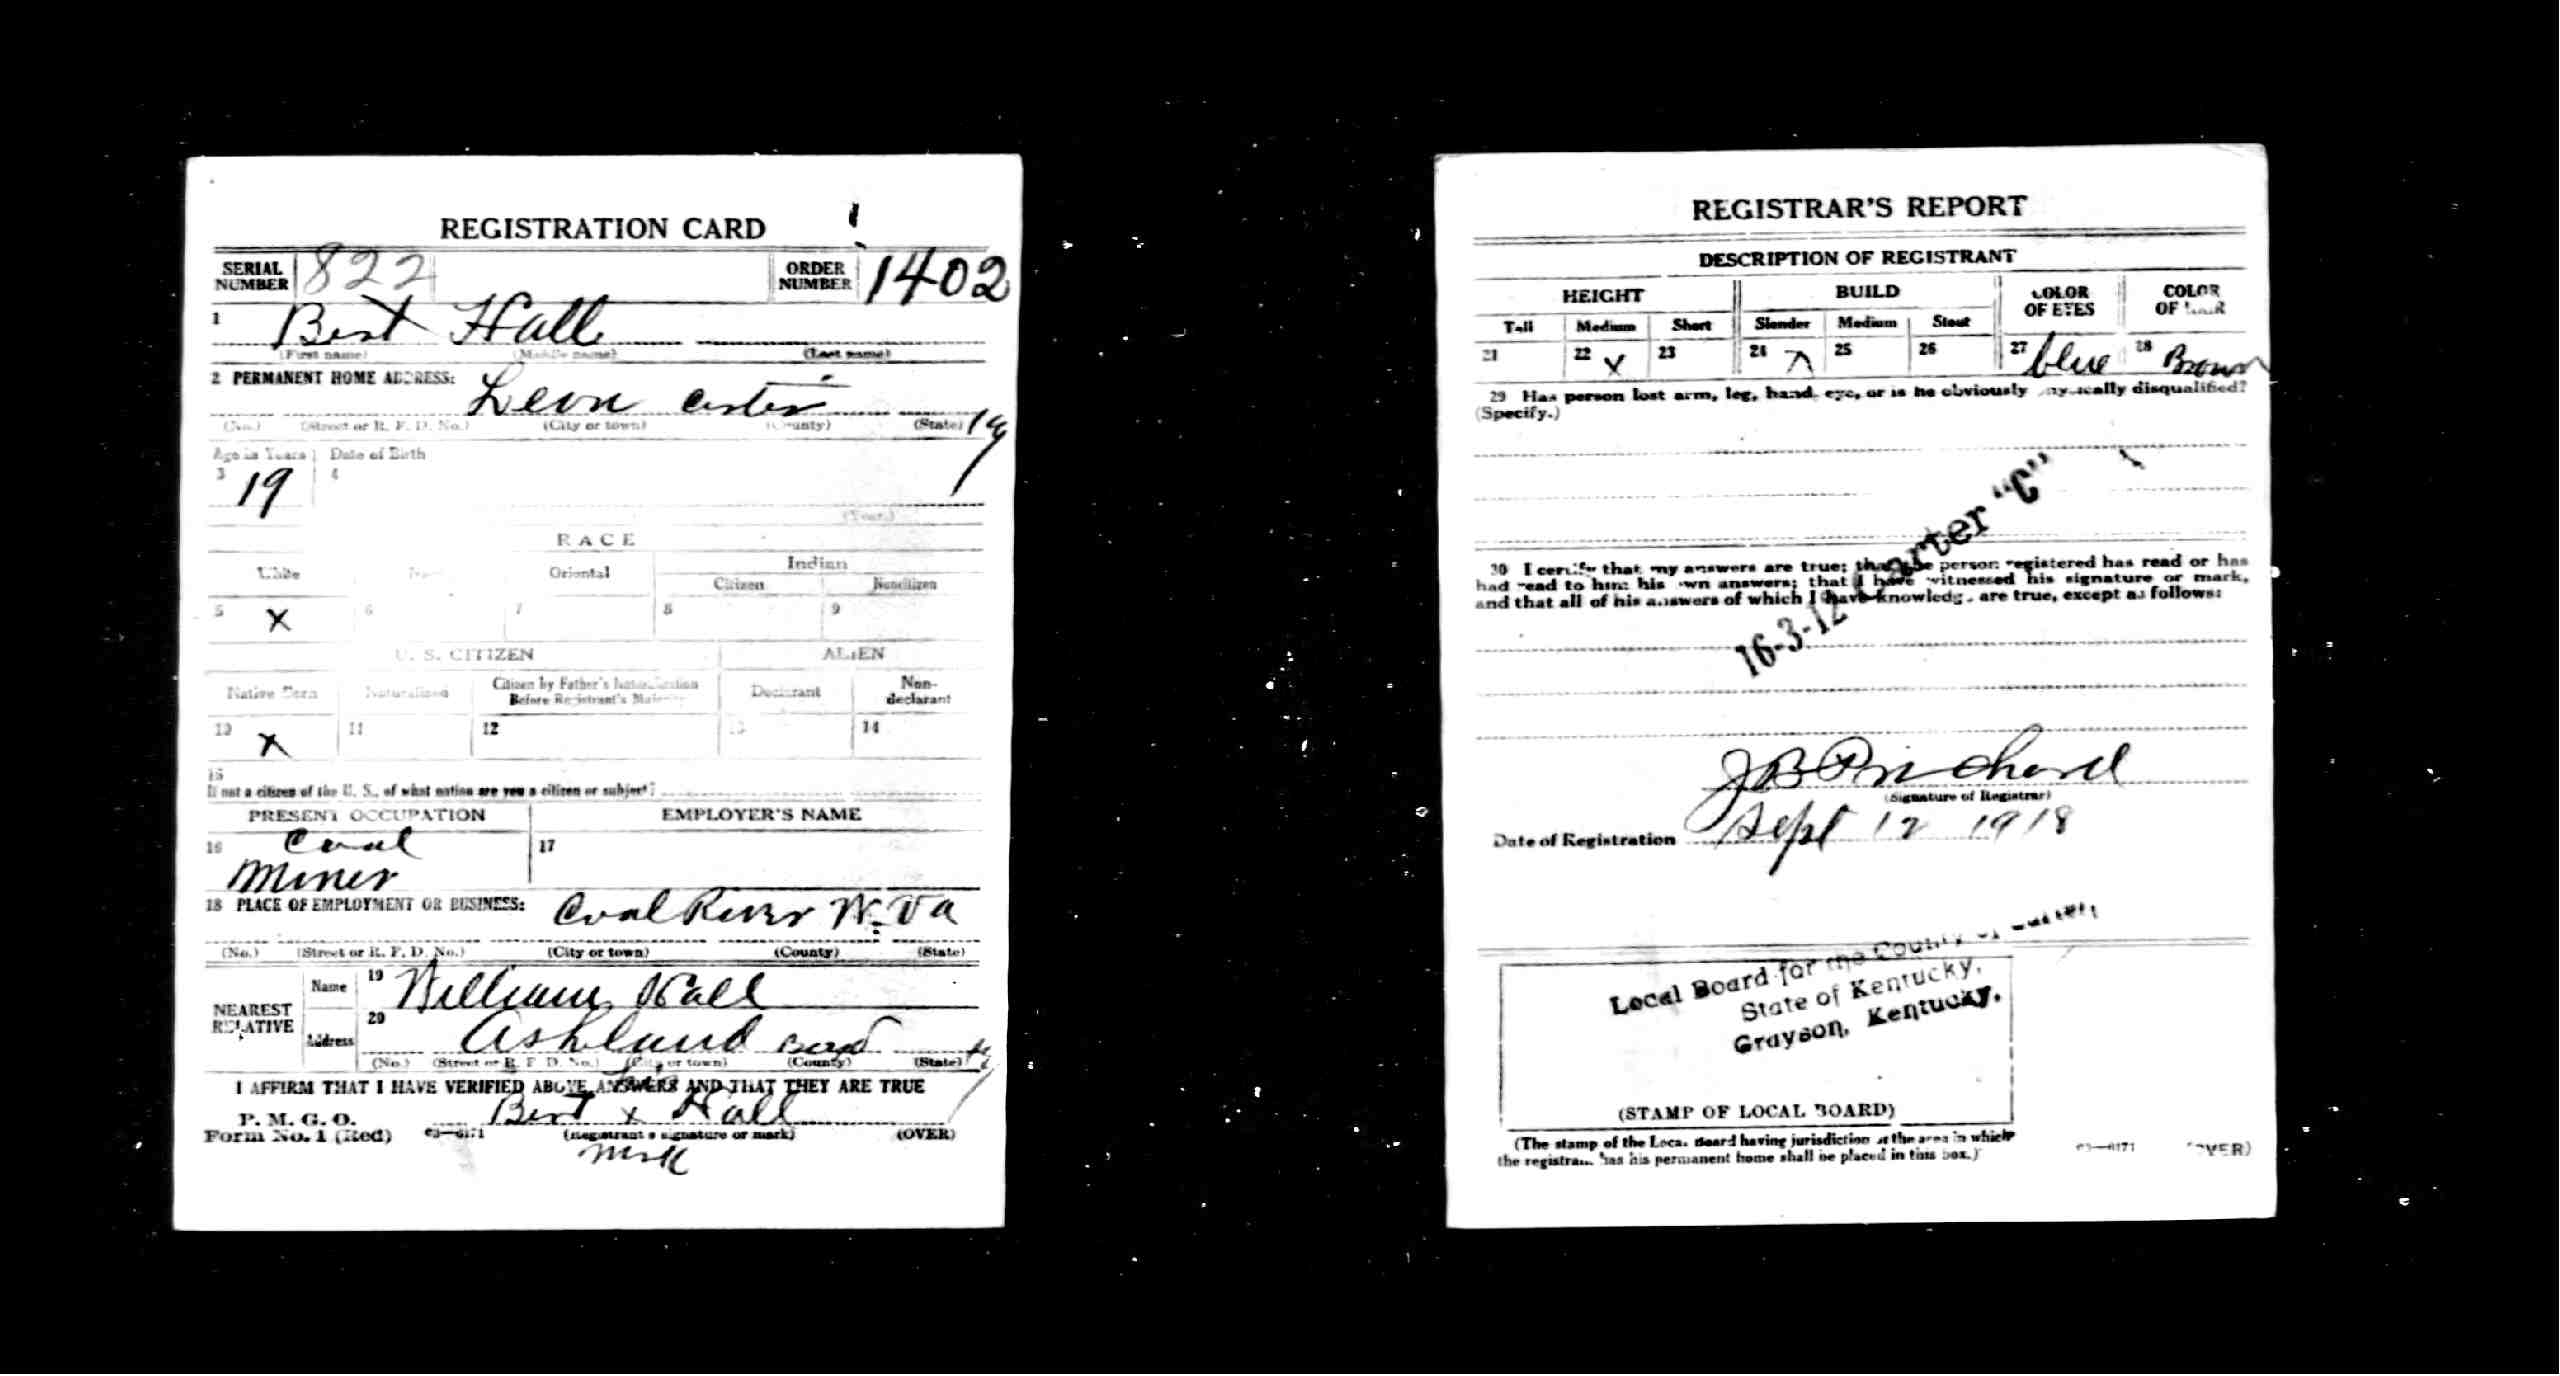 REGISTRATION CARD
SERIAL NUMBER 822 ORDER NUMBER 1402
1 Bert Hall
(First name) (Middle name) (Last name)
2 PERMANENT HOME ADDRESS:
Leon Carter Ky
(No.) (Street or R. F. D. No.) (City or town) (County) (State)
Age in Years Date of Birth
3 19 4
(Year)
RACE
White Oriental Indian
Citizen Noncitizen
5 X 6 7 8 9
U. S. CITIZEN ALIEN
Native Born Naturalized Citizen by Father's Naturalization Before Registrant's Majority Declarant Non-declarant
10 X 11 12 13 14
15
If not a citizen of the U. S., of what nation are you a citizen or subject?
PRESENT OCCUPATION EMPLOYER'S NAME
16 Coal 17
Miner
18 PLACE OF EMPLOYMENT OR BUSINESS:
Coal River W. Va
(No.) (Street or R. F. D. No.) (City or town) (County) (State)
NEAREST RELATIVE
Name 19 William Hall
Address 20 Ashland Boyd Ky
(No.) (Street or R. F. D. No.) (City or town) (County) (State)
I AFFIRM THAT I HAVE VERIFIED ABOVE ANSWERS AND THAT THEY ARE TRUE
his
P. M. G. O.
Bert x Hall
Form No. 1 (Red) 03—6171 (Registrant's signature or mark) (OVER)
mark
REGISTRAR'S REPORT
DESCRIPTION OF REGISTRANT
HEIGHT BUILD COLOR OF EYES COLOR OF HAIR
Tall Medium Short Slender Medium Stout
21 22 X 23 24 X 25 26 27 blue 28 Brown
29 Has person lost arm, leg, hand, eye, or is he obviously physically disqualified?
(Specify.)
16-3-12 Carter "C"
30 I certify that my answers are true; that the person registered has read or has
had read to him his own answers; that I have witnessed his signature or mark,
and that all of his answers of which I have knowledge are true, except as follows:
J B Prichard
(Signature of Registrar)
Date of Registration Sept 12 1918
Local Board for the County of Carter,
State of Kentucky,
Grayson, Kentucky.
(STAMP OF LOCAL BOARD)
(The stamp of the Local Board having jurisdiction of the area in which
the registrant has his permanent home shall be placed in this box.)
03—6171 (OVER)